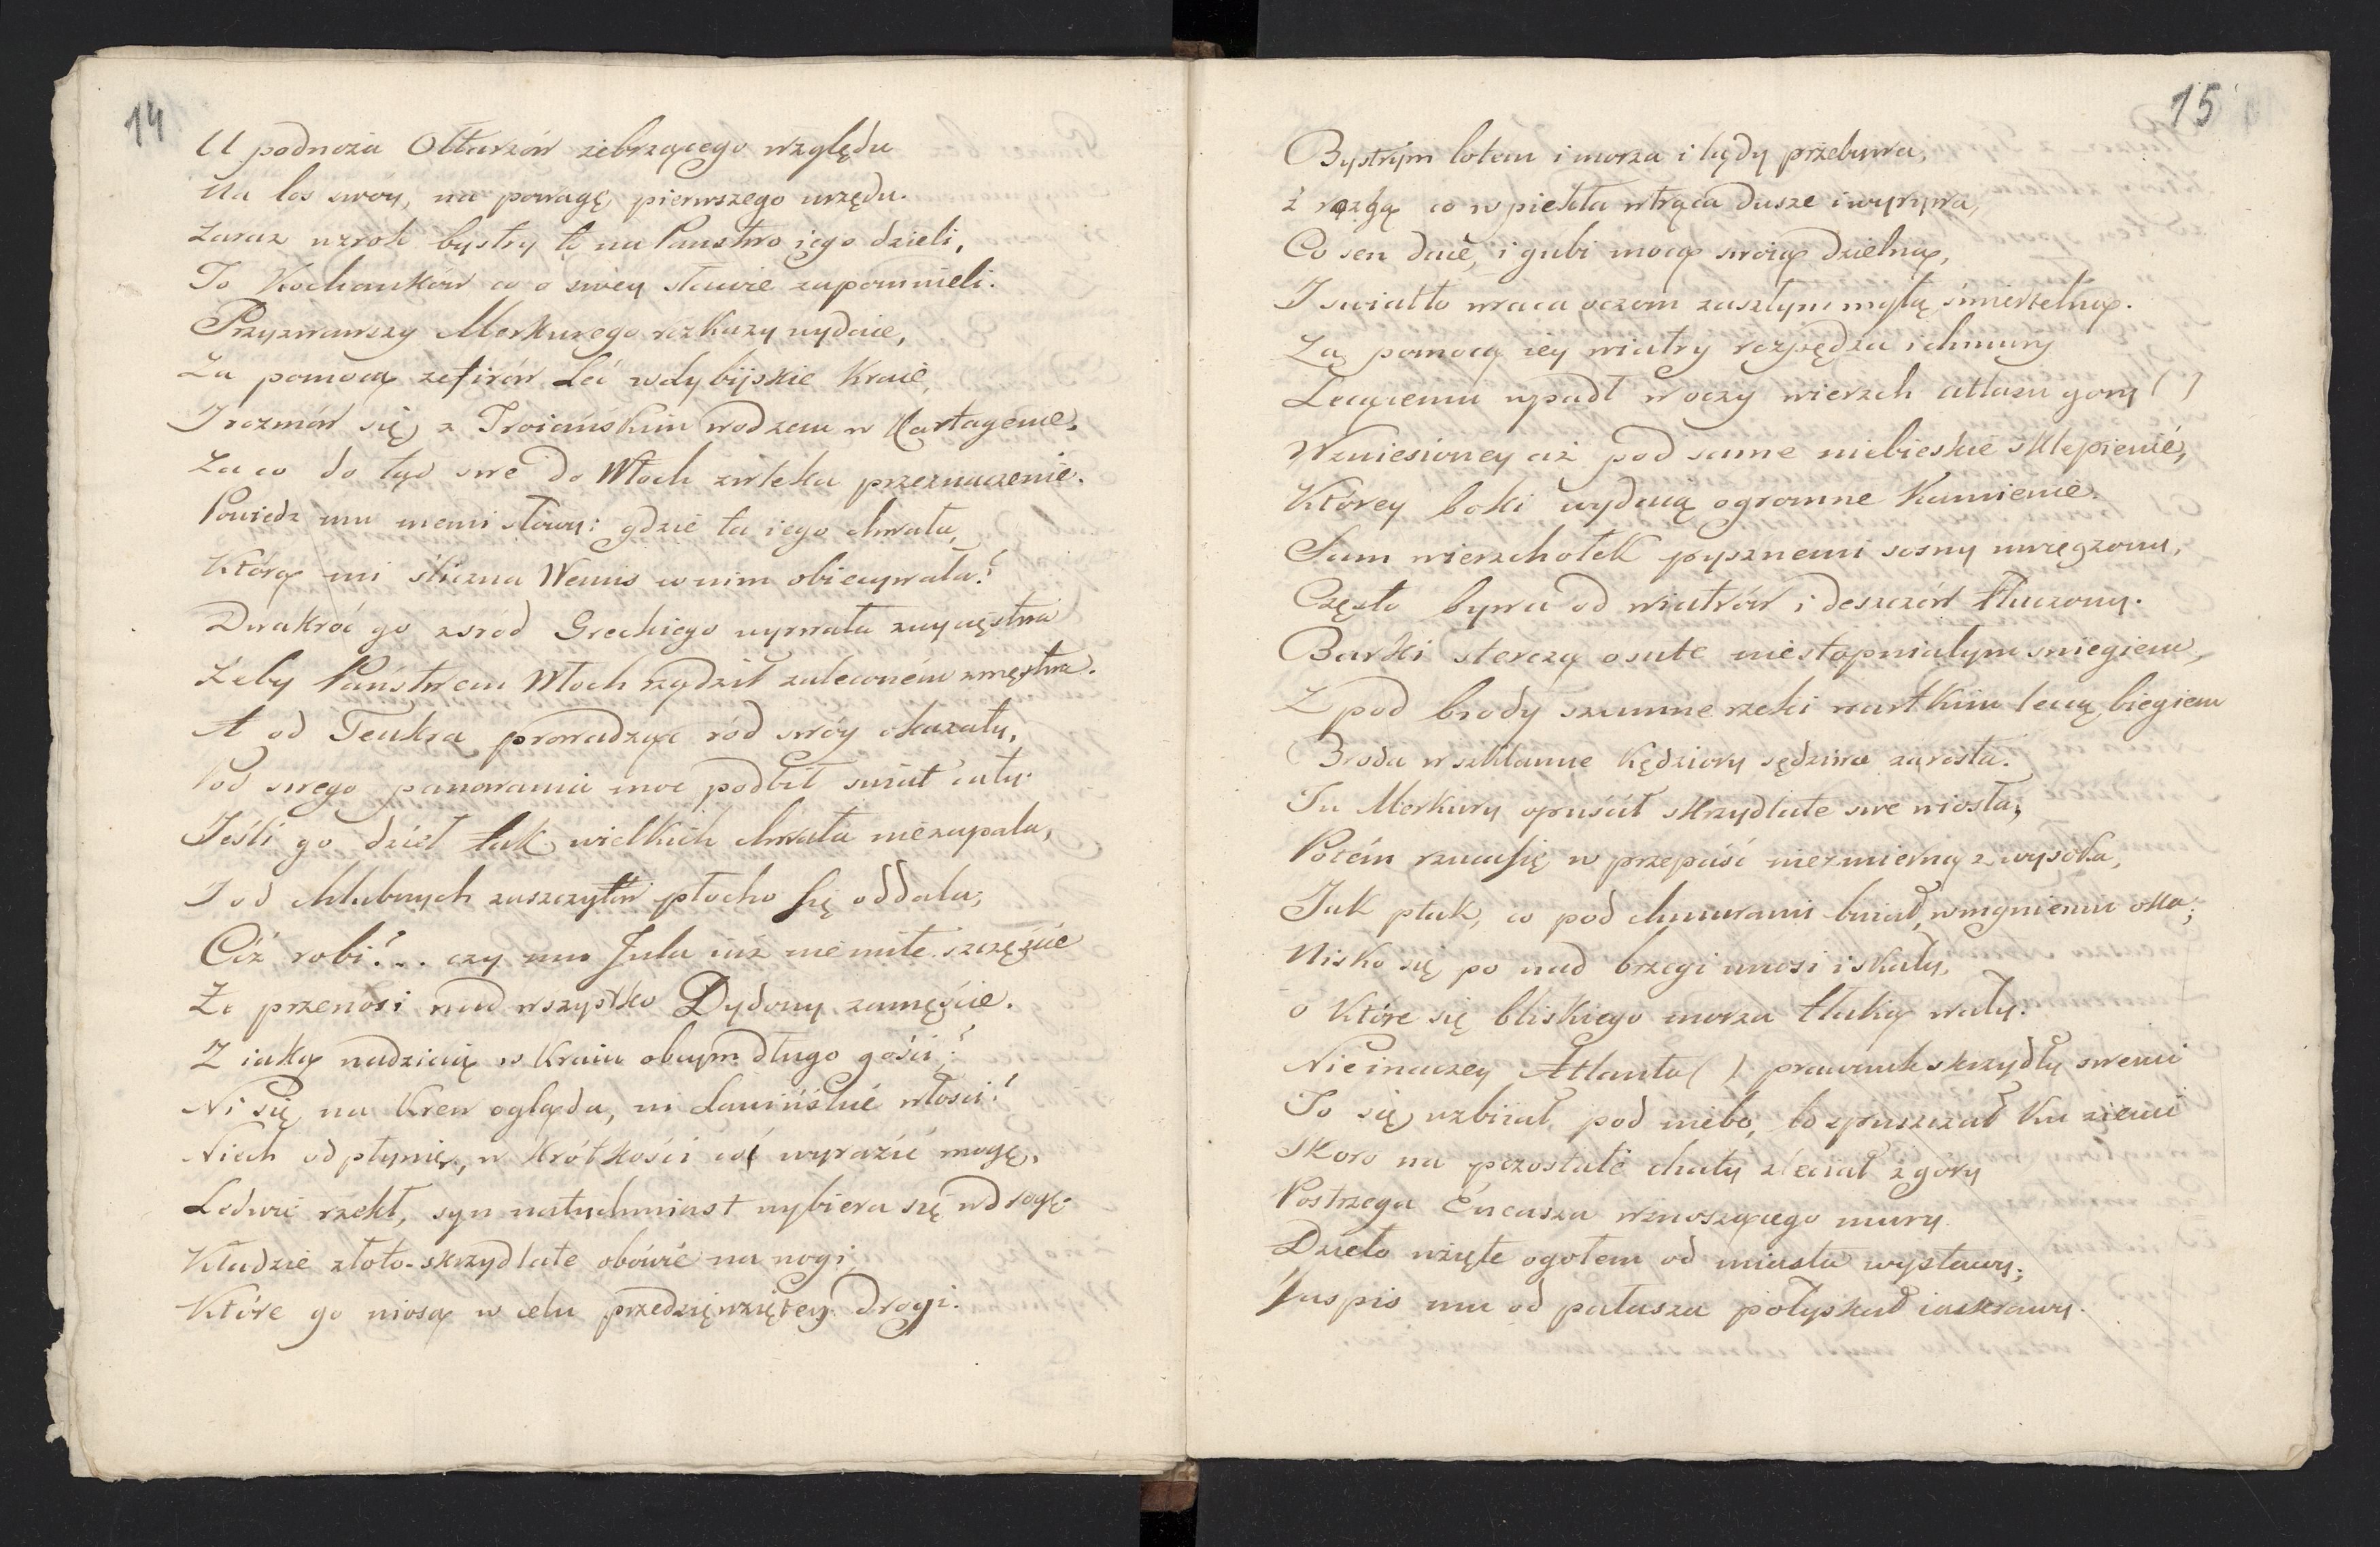 14
U podnoża Ołtarzów żebrzącego względu
Na los swóy, na powagę pierwszego urzędu.
Zaraz wzrok bystry to na Panstwo iego dzieli,
To Kochanków co o swey sławie zapomnieli.
Przyzwawszy Merkurego rozkazy wydaie,
Za pomocą zefirów Leć w Lybijskie Kraie,
I rozmów się z Troiańskim wodzem w Kartagenie.
Za co do tąd swe do Włoch zwleka przeznaczenie.
Powiedz mu memi słowy: gdzie ta iego chwała,
Którą mi śliczna Wenus w nim obiecywała?
Dwakroć go zsród Greckiego wyrwała zwycęstwa
Żeby Państwem Włoch rządził zaleconém z męstwa.
A od Teukra prowadząc ród swóy okazały,
Pod swego panowania moc podbił swiat cały.
Ieśli go dzieł tak wielkich chwała nie zapala,
I od chlubnych zaszczytów płocho się oddala;
Cóż robi?... czy mu Jula iuż nie miłe szczęście
Że przenosi nad wszystko Dydony zamęście.
Z iaką nadzieią w Kraiu obcym długo gości?
Ni się na Krew ogląda, ni Lawińskie włości?
Niech odpłynie, w krótkości coć wyrazić mogę.
Ledwie rzekł, syn natychmiast wybiera się w drogę.
Kładzie złoto-skrzydlate obówie na nogi,
Które go niosą w celu przedsięwziętey drogi.
15
Bystrym lotem i morza i lądy przebywa,
z rozgą co w piekła wtrąca dusze i wyrywa,
Co sen daie, i gubi mocą swoią dzielną,
I swiatło wraca oczom zaszłym mgłą śmiertelną.
Za pomocą iey wiatry rozpędza i chmury
Lecącemu wpadł w oczy wierzch Atlasu gory ( )
Wzniesioney aż pod same niebieskie sklepienie,
Którey boki wydaią ogromne Kamienie.
Sam wierzchołek pysznemi sosny uwięczony,
Często bywa od wiatrów i deszczów tłuczony.
Barki sterczą osute niestopniałym sniegiem,
Z pod brody szumne rzeki wartkim lecą biegiem
Broda w szklanne Kędziory sędziwa zarosła.
Tu Merkury opuścił skrzydlate swe wiosła,
Potém rzuca się w przepaść niezmierną z wysoka,
Jak ptak, co pod chmurami buiał, w mgnieniu oka;
Nisko się po nad brzegi unosi i skały,
o Które się bliskiego morza tłuką wały.
Nie inaczey Atlanta ( ) prawnuk skrzydły swemi
To się wzbiiał pod niebo, to zpuszczał Ku ziemi
Skoro na pozostałe chaty zleciał z góry
Postrzega Eneasza wznoszącego mury.
Dzieło wzięte ogołem od miasta wystawy;
Jaspis mu od pałasza połyskał iaskrawy.